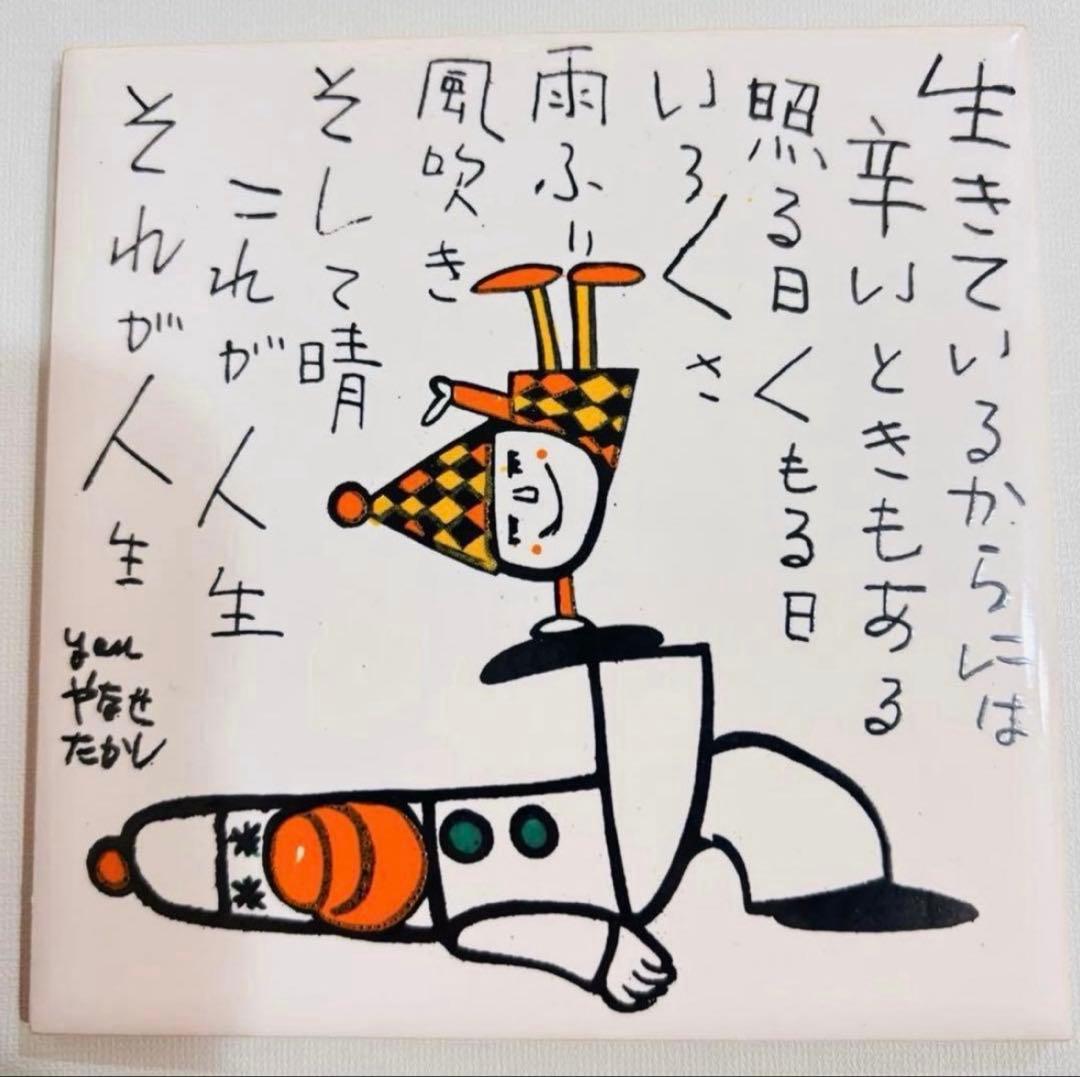 生きているからには
辛いときもある
照る日くもる日
いろ〱さ
雨ふり
風吹き
そして晴
これが人生
それが人生
yan
やなせ
たかし